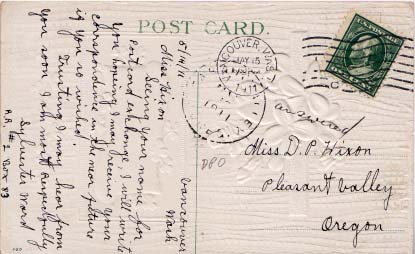 POST CARD
VANCOUVER, WASH.
MAY 15
1911
1911
answered
DPO
Miss D. P. Wixon
Pleasant Valley
Oregon
Vancouver
Wash
5/14/11
Miss Wixon
Seeing your name for
postcard exchange, I will write
you hoping I may receive your
correspondence in the near future
if you so wished.
Trusting I may hear from
you soon I am most respectfully
Sylvester Ward
R.R. #2 Box 83